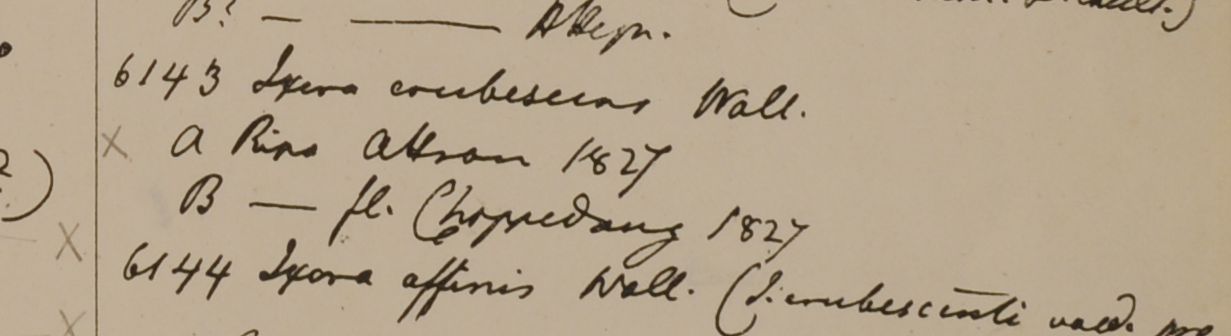 B? — ——— Attepr.
6143 Ixora erubescens Wall.
X A Ripa Attran 1827
B — fl. Choppedong 1827
X 6144 Ixora affinis Wall. (I. erubescenti valde